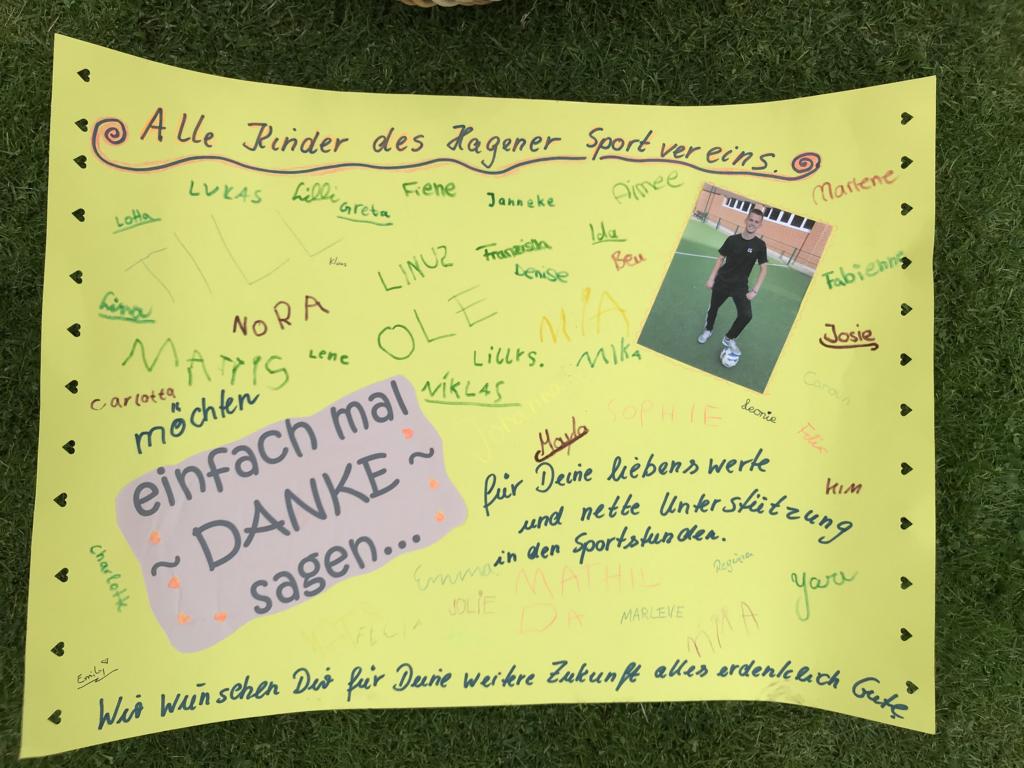 Alle Kinder des Hagener Sportvereins.
LUKAS Lilli Greta Fiene Janneke Aimee Marlene
Lotta TILL Klaus LINUS Franziska Denise Ida Ben Fabienne
Lina NORA OLE MIA Josie
MATTIS Lene Lillys. MIKA
Carlotta NIKLAS Johanna SOPHIE Leonie Carolin
möchten Mayla Felix
einfach mal
~ DANKE ~
sagen...
für Deine liebenswerte
KIM
und nette Unterstützung
in den Sportstunden.
Charlotte Emma MATHIL Regina Yara
JOLIE DA MARLEVE
FELIX
Emily
Wir wünschen Dir für Deine weitere Zukunft alles erdenklich Gute